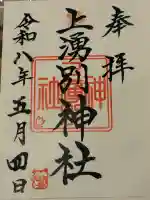 奉拝
上湧別神社
令和八年五月四日